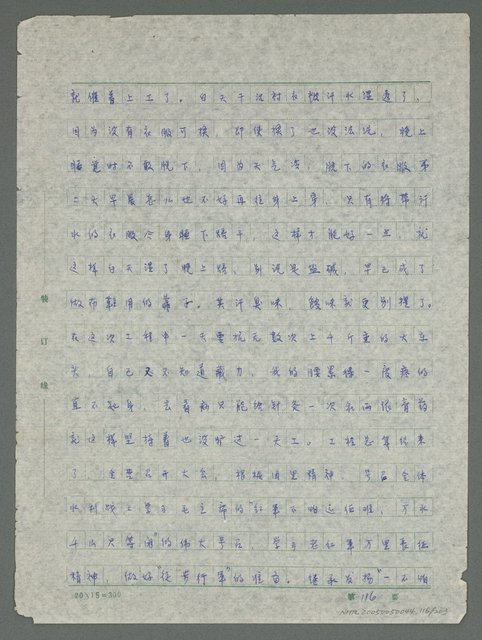 就催着上工了。白天干活衬衣被汗水湿透了，
因为没有衣服可换，即使换了也没法洗，晚上
睡觉时不敢脱下，因为天气凉，脱下的衣服第
二天早晨怎么也不好再往身上穿，只有将带汗
水的衣服合身睡下焐干，这样才能好一点，就
这样白天湿了晚上焐，别说是盐碱，早已成了
做布鞋用的 了。其汗臭味，酸味就更别提了。
在这次工程中一天要扛无数次上千斤重的大车
，自己又不知道 力，我的腰累得一度疼的
直不起身，去看病只能给针灸一次 膏药
就这样坚持着也没旷过一天工。工程总算结束
了，全要召开大会，根据团里精神，号召全体
水利战士学习毛主席的“红军不怕远征难，万水
千山只等闲”的伟大号召，学习老红军万里长征
精神，做好“徒步行军”的准备。继承发扬“一不怕
20×15=300
第 116 页
NMTH 20050050044, 116/203
装
订
线